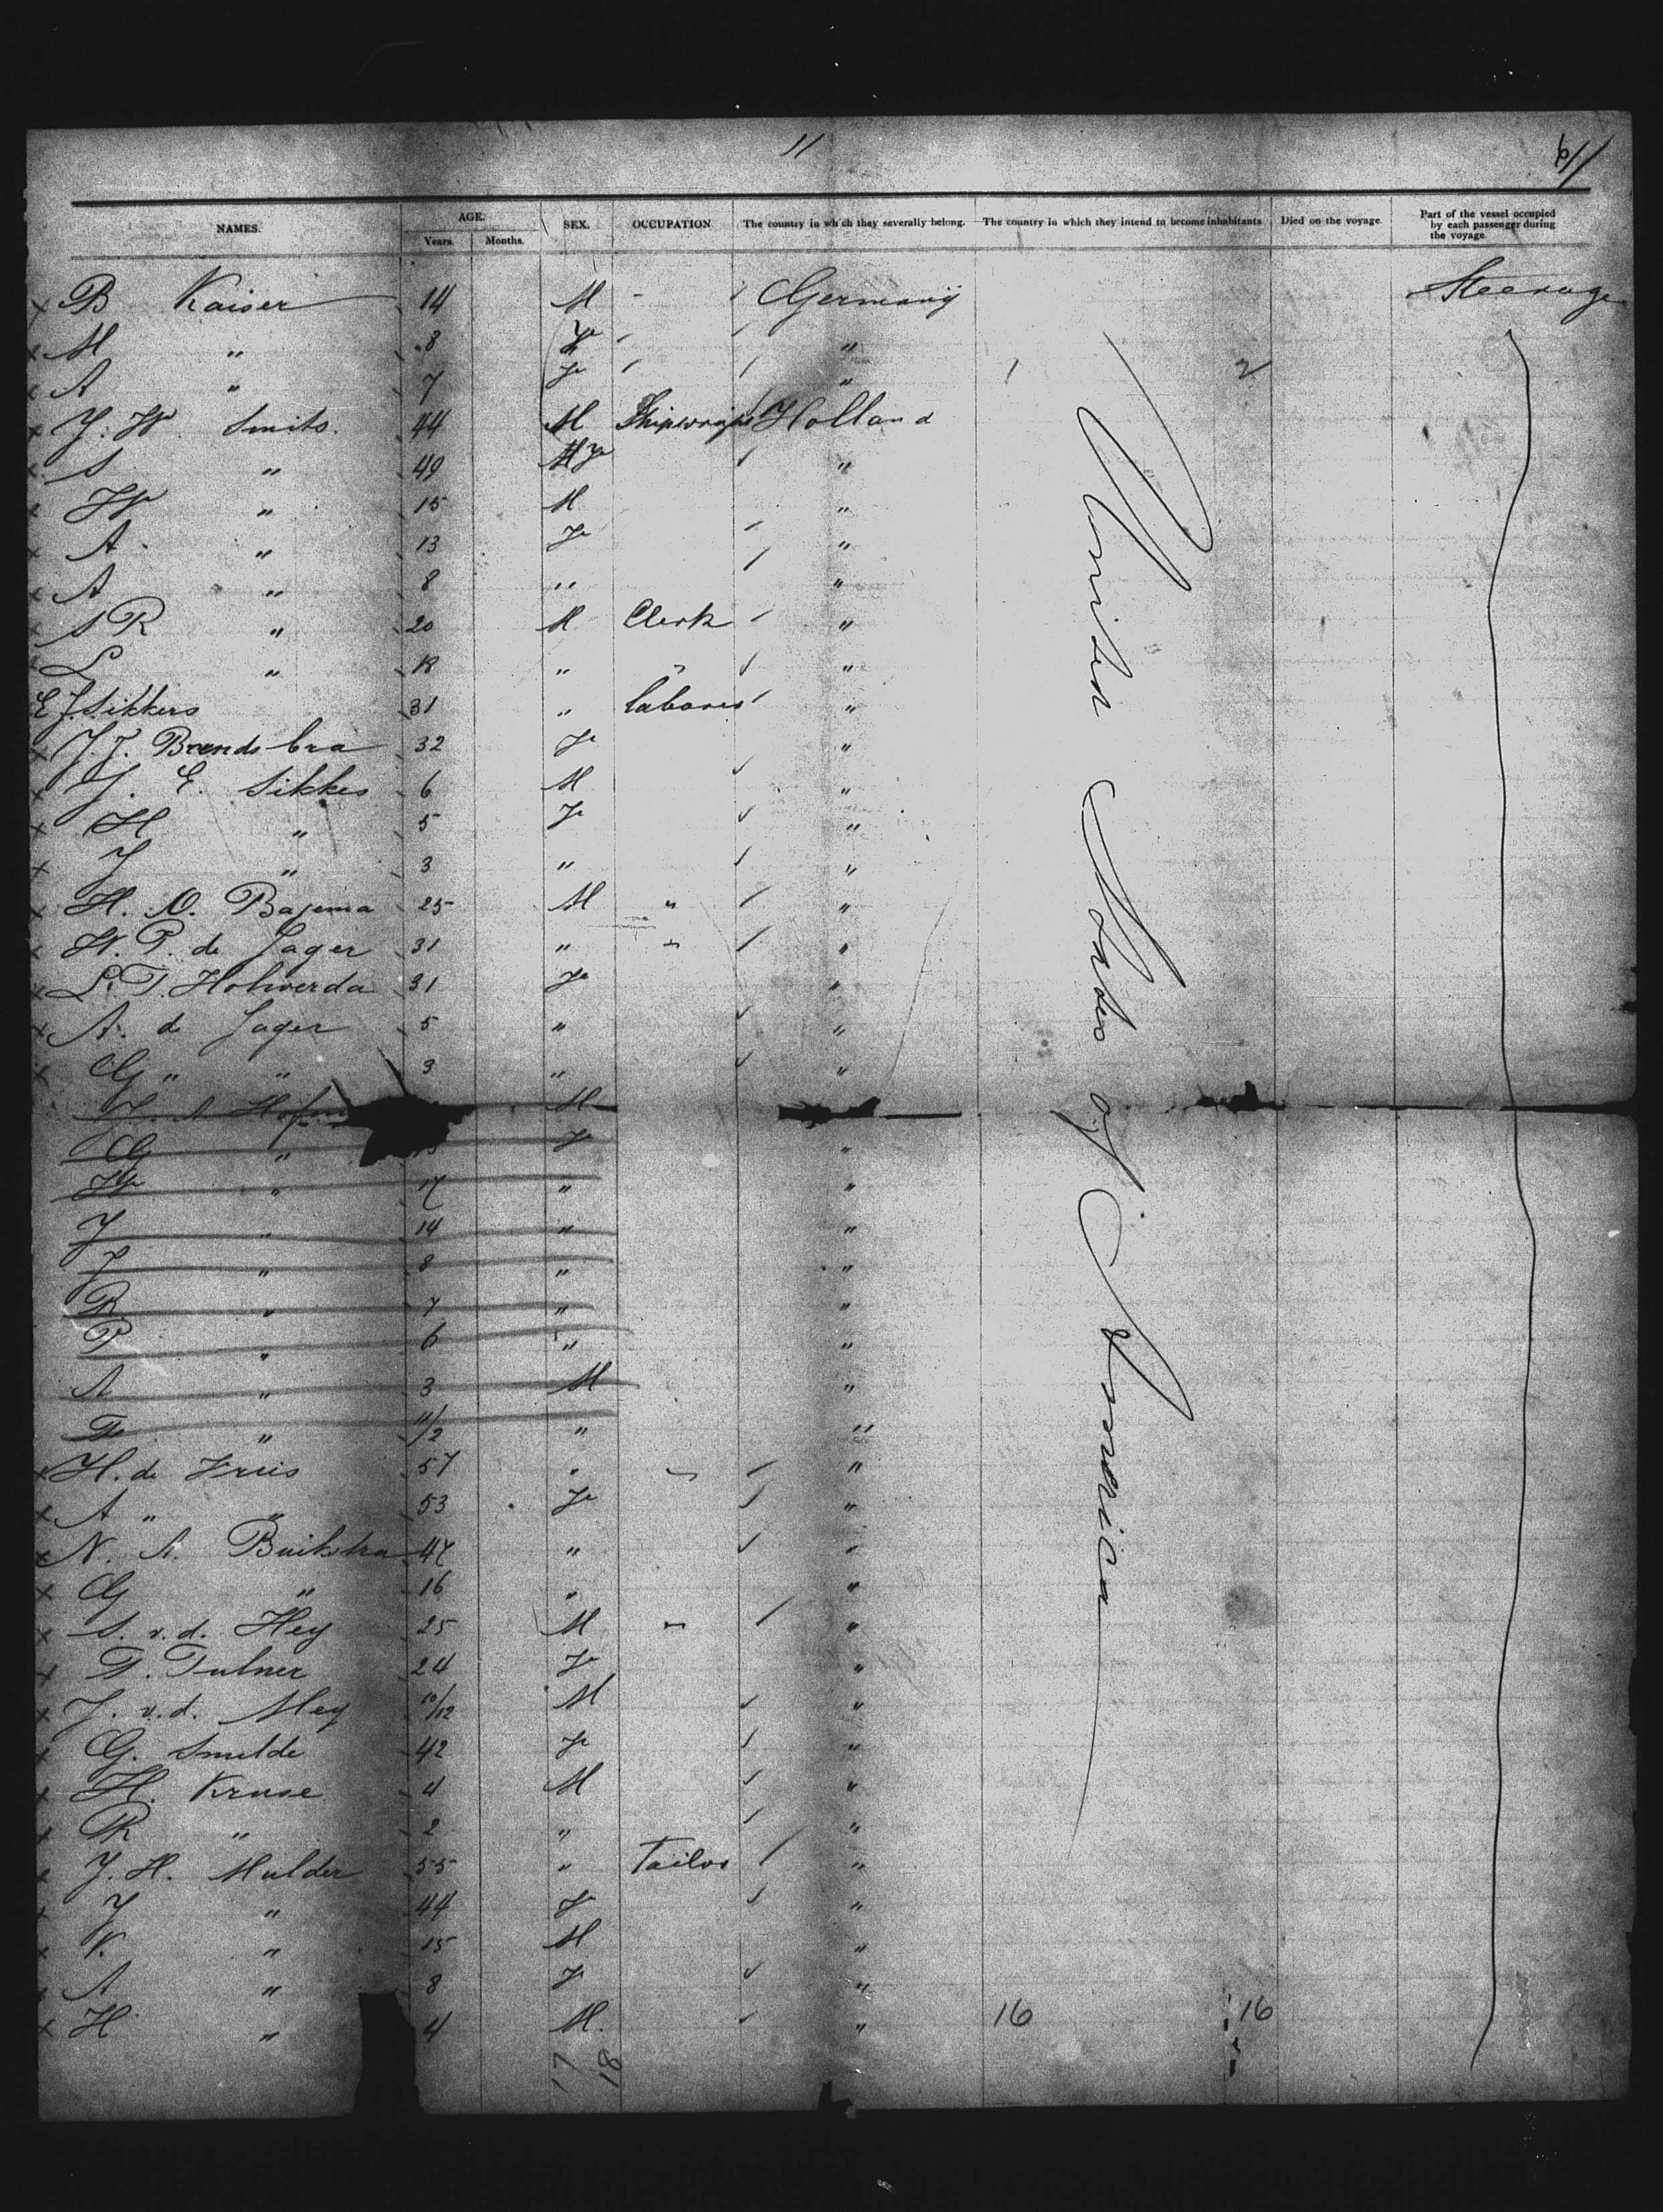 11
11
NAMES. AGE. Years. Months. SEX. OCCUPATION The country in which they severally belong. The country in which they intend to become inhabitants Died on the voyage. Part of the vessel occupied by each passenger during the voyage
x B Kaiser 14 M - Germany Steerage
x M " 8 Fe "
x A " 7 Fe " 1 2
x J. W. Smits. 44 M Shipwright Holland
x S. " 49 Fe "
x W " 15 M "
x A. " 13 Fe "
x A " 8 " "
x S R " 20 M Clerk "
x L " 18 " " "
E J. Sikkers 31 " labores "
x J. J. Brends bra 32 Fe "
x J. E. Sikkes 6 M "
x H " 5 Fe "
x J " 3 " "
x H. O. Bajema 25 M " "
x W. P. de Jager 31 " " "
x L. T. Holwerda 31 Fe "
x A. de Jager 5 " "
x G " " 3 " "
M
G " Fe "
W " 17 " "
J " 14 " "
J " 8 " "
R " 7 " "
P " 6 " "
A " 3 M "
" 11/2 " "
x H. de Fries 57 " " "
x A " " 53 Fe "
x N. A. Buikstra 47 " "
x G " 16 " "
x S. v. d. Hey 25 M " "
x T. Tulner 24 Fe "
x J. v. d. Mey 10/12 M "
x G. Smilde 42 Fe "
x H. Kruse 4 M "
x R " 2 " "
x J. H. Mulder 55 " Tailor "
x J " 44 F "
x K. " 15 M "
x A " 8 F "
x H " 4 M. " 16 16
17 18
United States of America